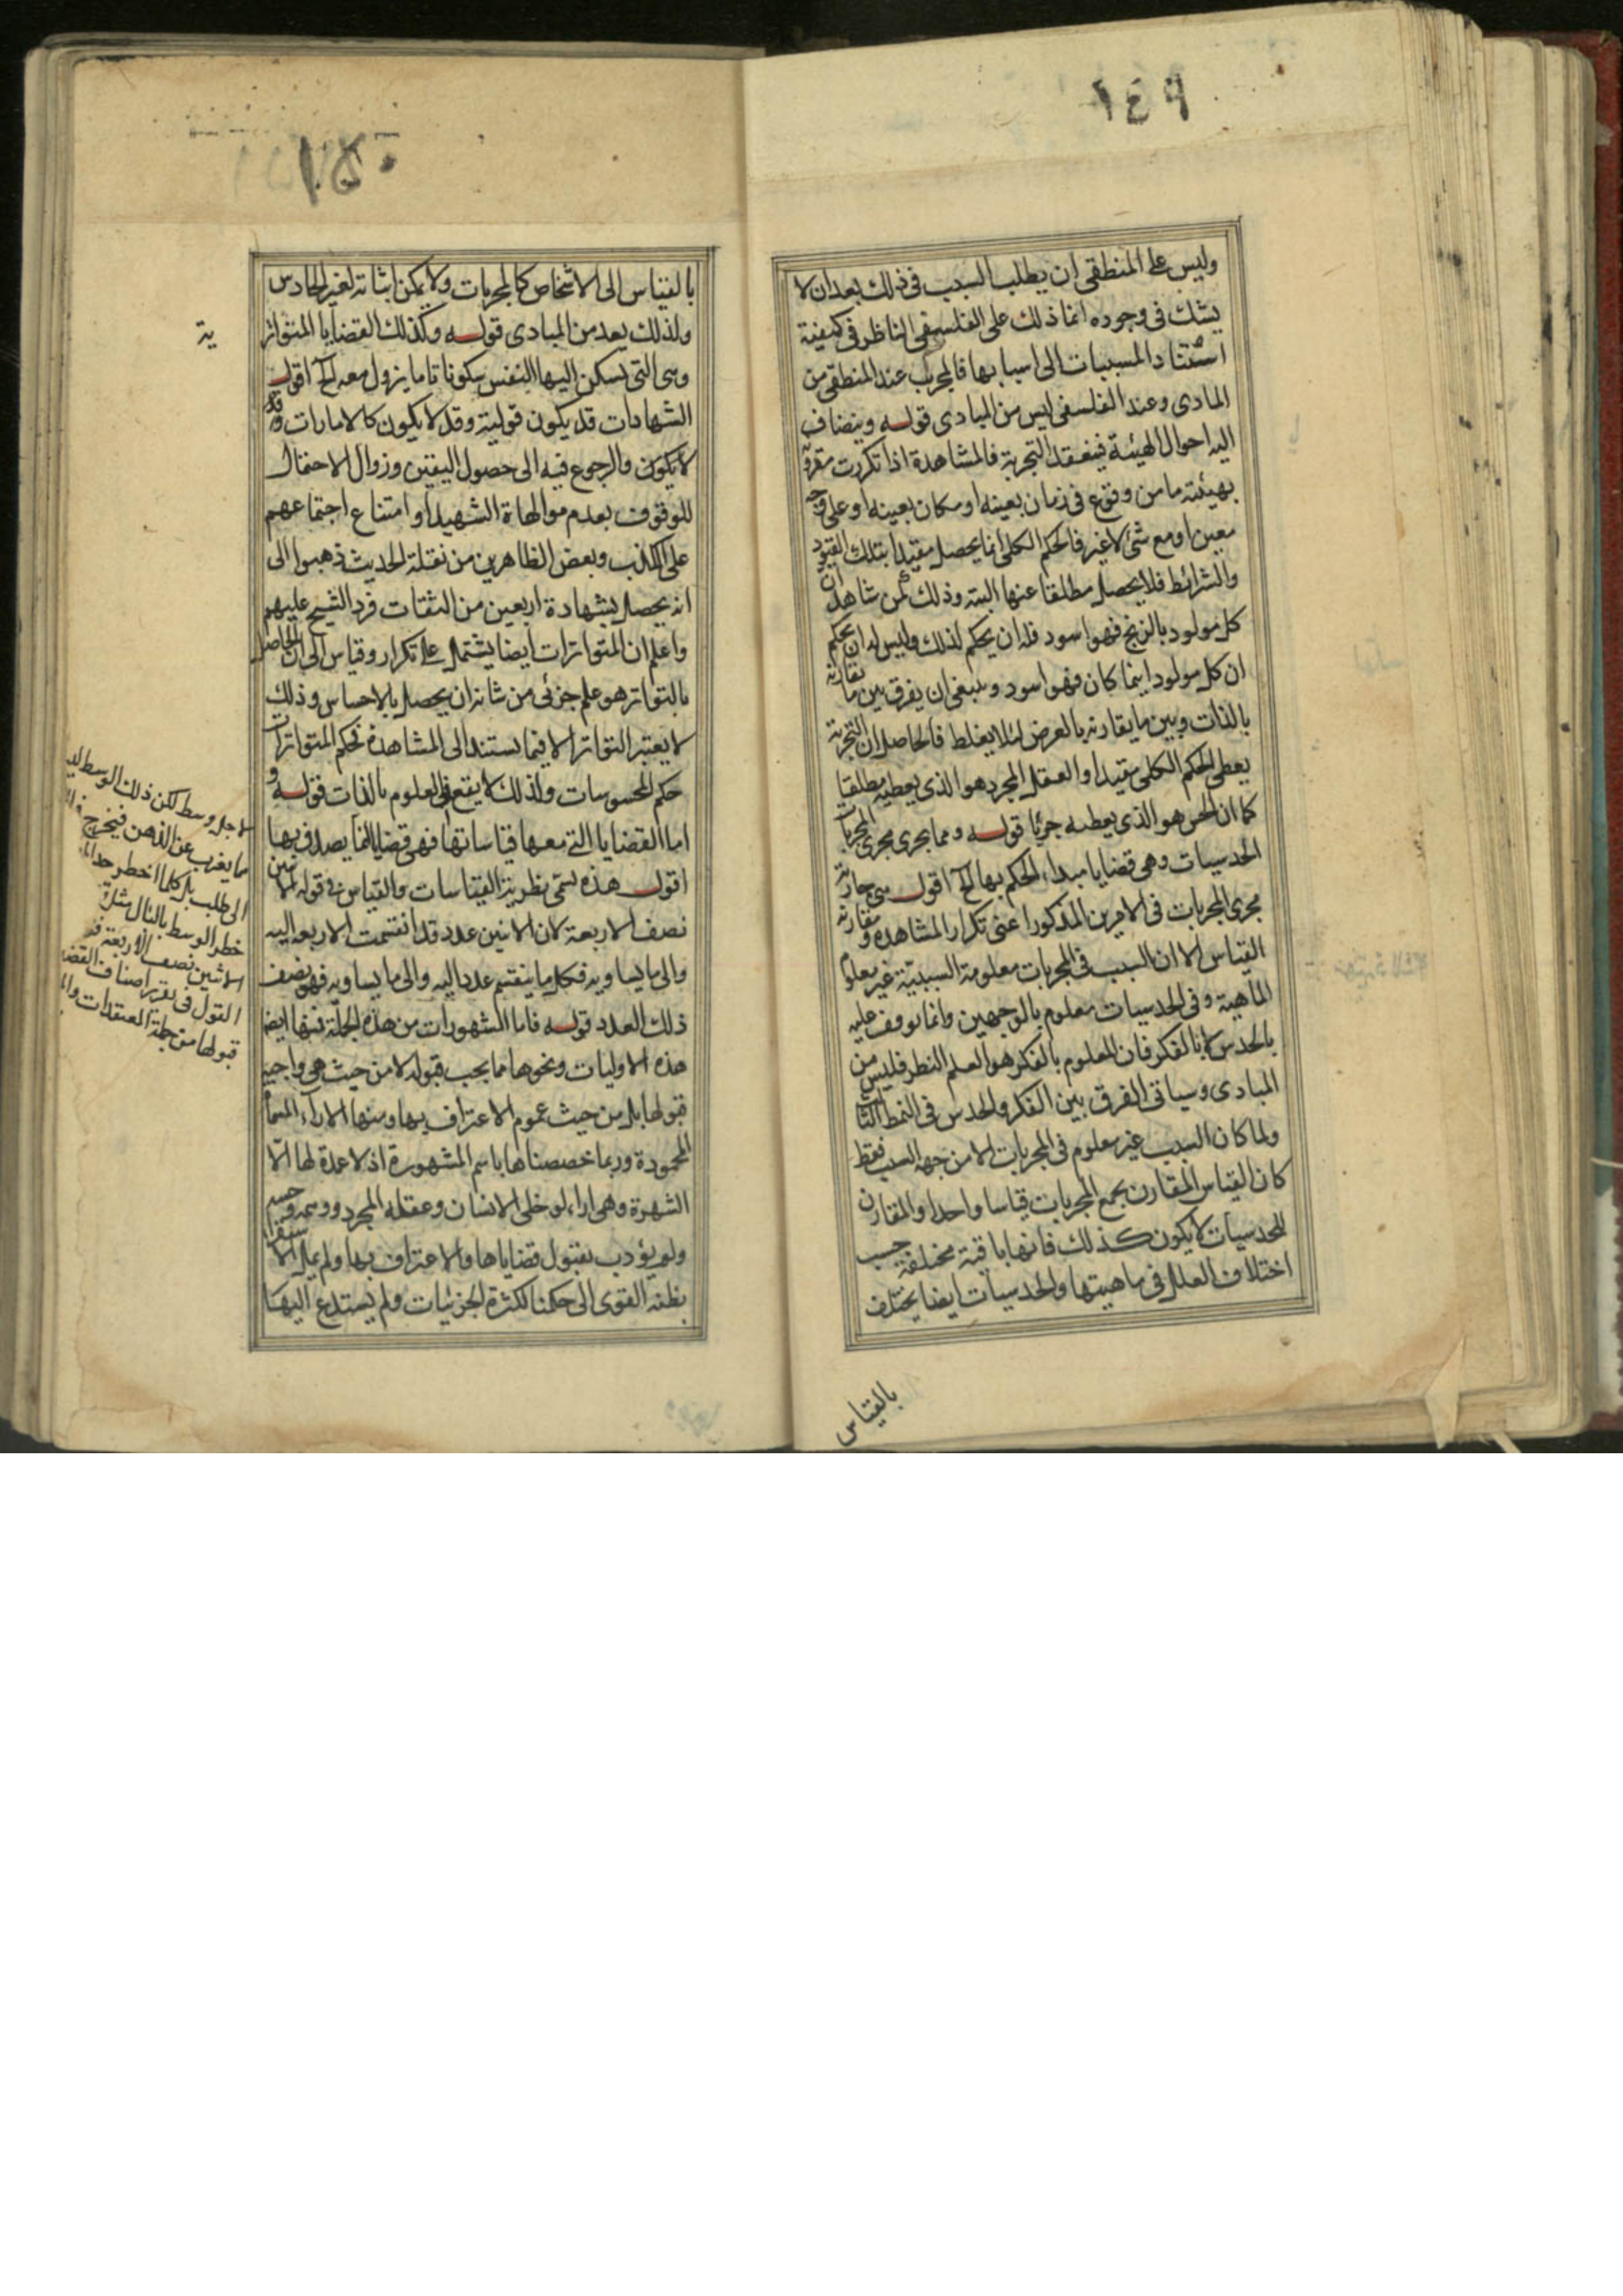 ١٤٩
وليس على المنطقى ان يطلب السبب فى ذلك بعد ان لا
يشك فى وجوده انما ذلك على الفلسفى الناظر فى كيفية
استناد المسببات الى اسبابها فالمجرب عند المنطقى من
المبادى وعند الفلسفى ليس من المبادى قوله وينضاف
اليه احوال الهيئة فينعقد التجربة فالمشاهدة اذا تكررت مقرونة
بهيئته ما من وقوع فى زمان بعينه او مكان بعينه او على وجه
معين او مع شئ لا غير فالحكم الكلى انما يحصل مقيدا بتلك القيود
والشرائط فلا يحصل مطلقا عنها البته وذلك كمن شاهد ان
كل مولود بالزنج فهو اسود فله ان يحكم لذلك وليس له ان يحكم
ان كل مولود اينما كان فهو اسود وينبغى ان يفرق بين ما يقارنه
بالذات وبين ما يقارنه بالعرض لئلا يغلط فالحاصل ان التجربة
يعطى الحكم الكلى مقيدا والعقل المجرد هو الذى يعطيه مطلقا
كما ان الحس هو الذى يعطيه جزئيا قوله ومما يجرى مجرى المجربات
الحدسيات وهى قضايا مبداء الحكم بها الخ اقول هى جارية
مجرى المجربات فى الامرين المذكورا عنى تكرار المشاهده و مقارنة
القياس الا ان السبب فى المجربات معلومة السببية غير معلوم
الماهية وفى الحدسيات معلوم بالوجهين وانما يوقف عليه
بالحدس لا بالفكر فان المعلوم بالفكر هو العلم النظر فليس من
المبادى وسياتى الفرق بين الفكر والحدس فى النمط الثالث
ولما كان السبب غير معلوم فى المجربات الا من جهه السبب فقط
كان القياس المقارن بجمع المجربات قياسا واحدا والمقارن
للحدسيات لا يكون كذلك فانها باقية مختلفة حسب
اختلاف العلل فى ماهيتها والحدسيات ايضا يختلف
بالقياس
١٥٠
بالقياس الى الاشخاص كالمجربات ولا يمكن اثباته لغير الحادس
ولذلك يعد من المبادى قوله وكذلك القضايا المتواتر
ية
وهى التى يسكن اليها النفس سكونا تاما يزول معه الخ اقول
الشهادات قد يكون قولية وقد لا يكون كالامارات وقد
لا يكون والرجوع فيه الى حصول اليقين وزوال الاحتمال
للوقوف بعدم مواطاة الشهيد او امتناع اجتماعهم
على الكذب وبعض الظاهرين من نقلة الحديث ذهبوا الى
انه يحصل بشهادة اربعين من الثقات فرد الشيخ عليهم
واعلم ان المتواترات ايضا يشتمل على تكرار وقياس الى ان الحاصل
بالتواتر هو علم جزئى من شانه ان يحصل بالاحساس وذلك
لا يعتبر التواتر الا فيما يستند الى المشاهدة فحكم المتواترات
حكم المحسوسات ولذلك لا يقع فى العلوم بالذات قوله و
اما القضايا التى معها قياساتها فهى قضايا انما يصدق بها
اقول هذه يسمى بطريق القياسات والقياس فى قوله الاثنين
نصف الاربعة لان الاثنين عدد قد انقسمت الاربعه اليه
والى ما يساويه فكل ما ينقسم عدد اليه والى ما يساويه فهو نصف
ذلك العدد قوله فاما المشهورات من هذه الجملة فمنها ايضا
هذه الاوليات ونحوها مما يجب قبوله لا من حيث هى واجبة
قبولها بل من حيث عموم الاعتراف بها ومنها الاراء المسماة
المحمودة وربما خصصناها باسم المشهورة اذ لا عمدة لها الا
الشهرة وهى اراء لو خلى الانسان وعقله المجرد ووهمه وحسه
ولم يؤدب بقبول قضاياها والاعتراف بها ولم يمل الاستقراء
بظنه القوى الى حكمنا لكثرة الجزئيات ولم يستدع اليها
لاجل وسط لكن ذلك الوسط ليس
مما يغرب عن الذهن فيخرج
الى طلب بل كلما اخطر حدا
خطر الوسط بالبال مثل
الاثنين نصف الاربعة
القول فى تقرير اصناف القضا
قبولها من جملة المعتقدات وا